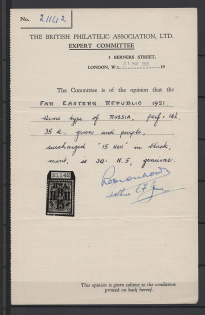 No. 21142
THE BRITISH PHILATELIC ASSOCIATION, LTD.
EXPERT COMMITTEE
3 BERNERS STREET,
LONDON, W.1. 19
The Committee is of the opinion that the
FAR EASTERN REPUBLIC 1921.
Arms type of RUSSIA, perf.
35 k. green and purple,
surcharged "15 KOП" in black,
mint, is SG. N.5, genuine.
21142
This opinion is given subject to the conditions
printed on back hereof.